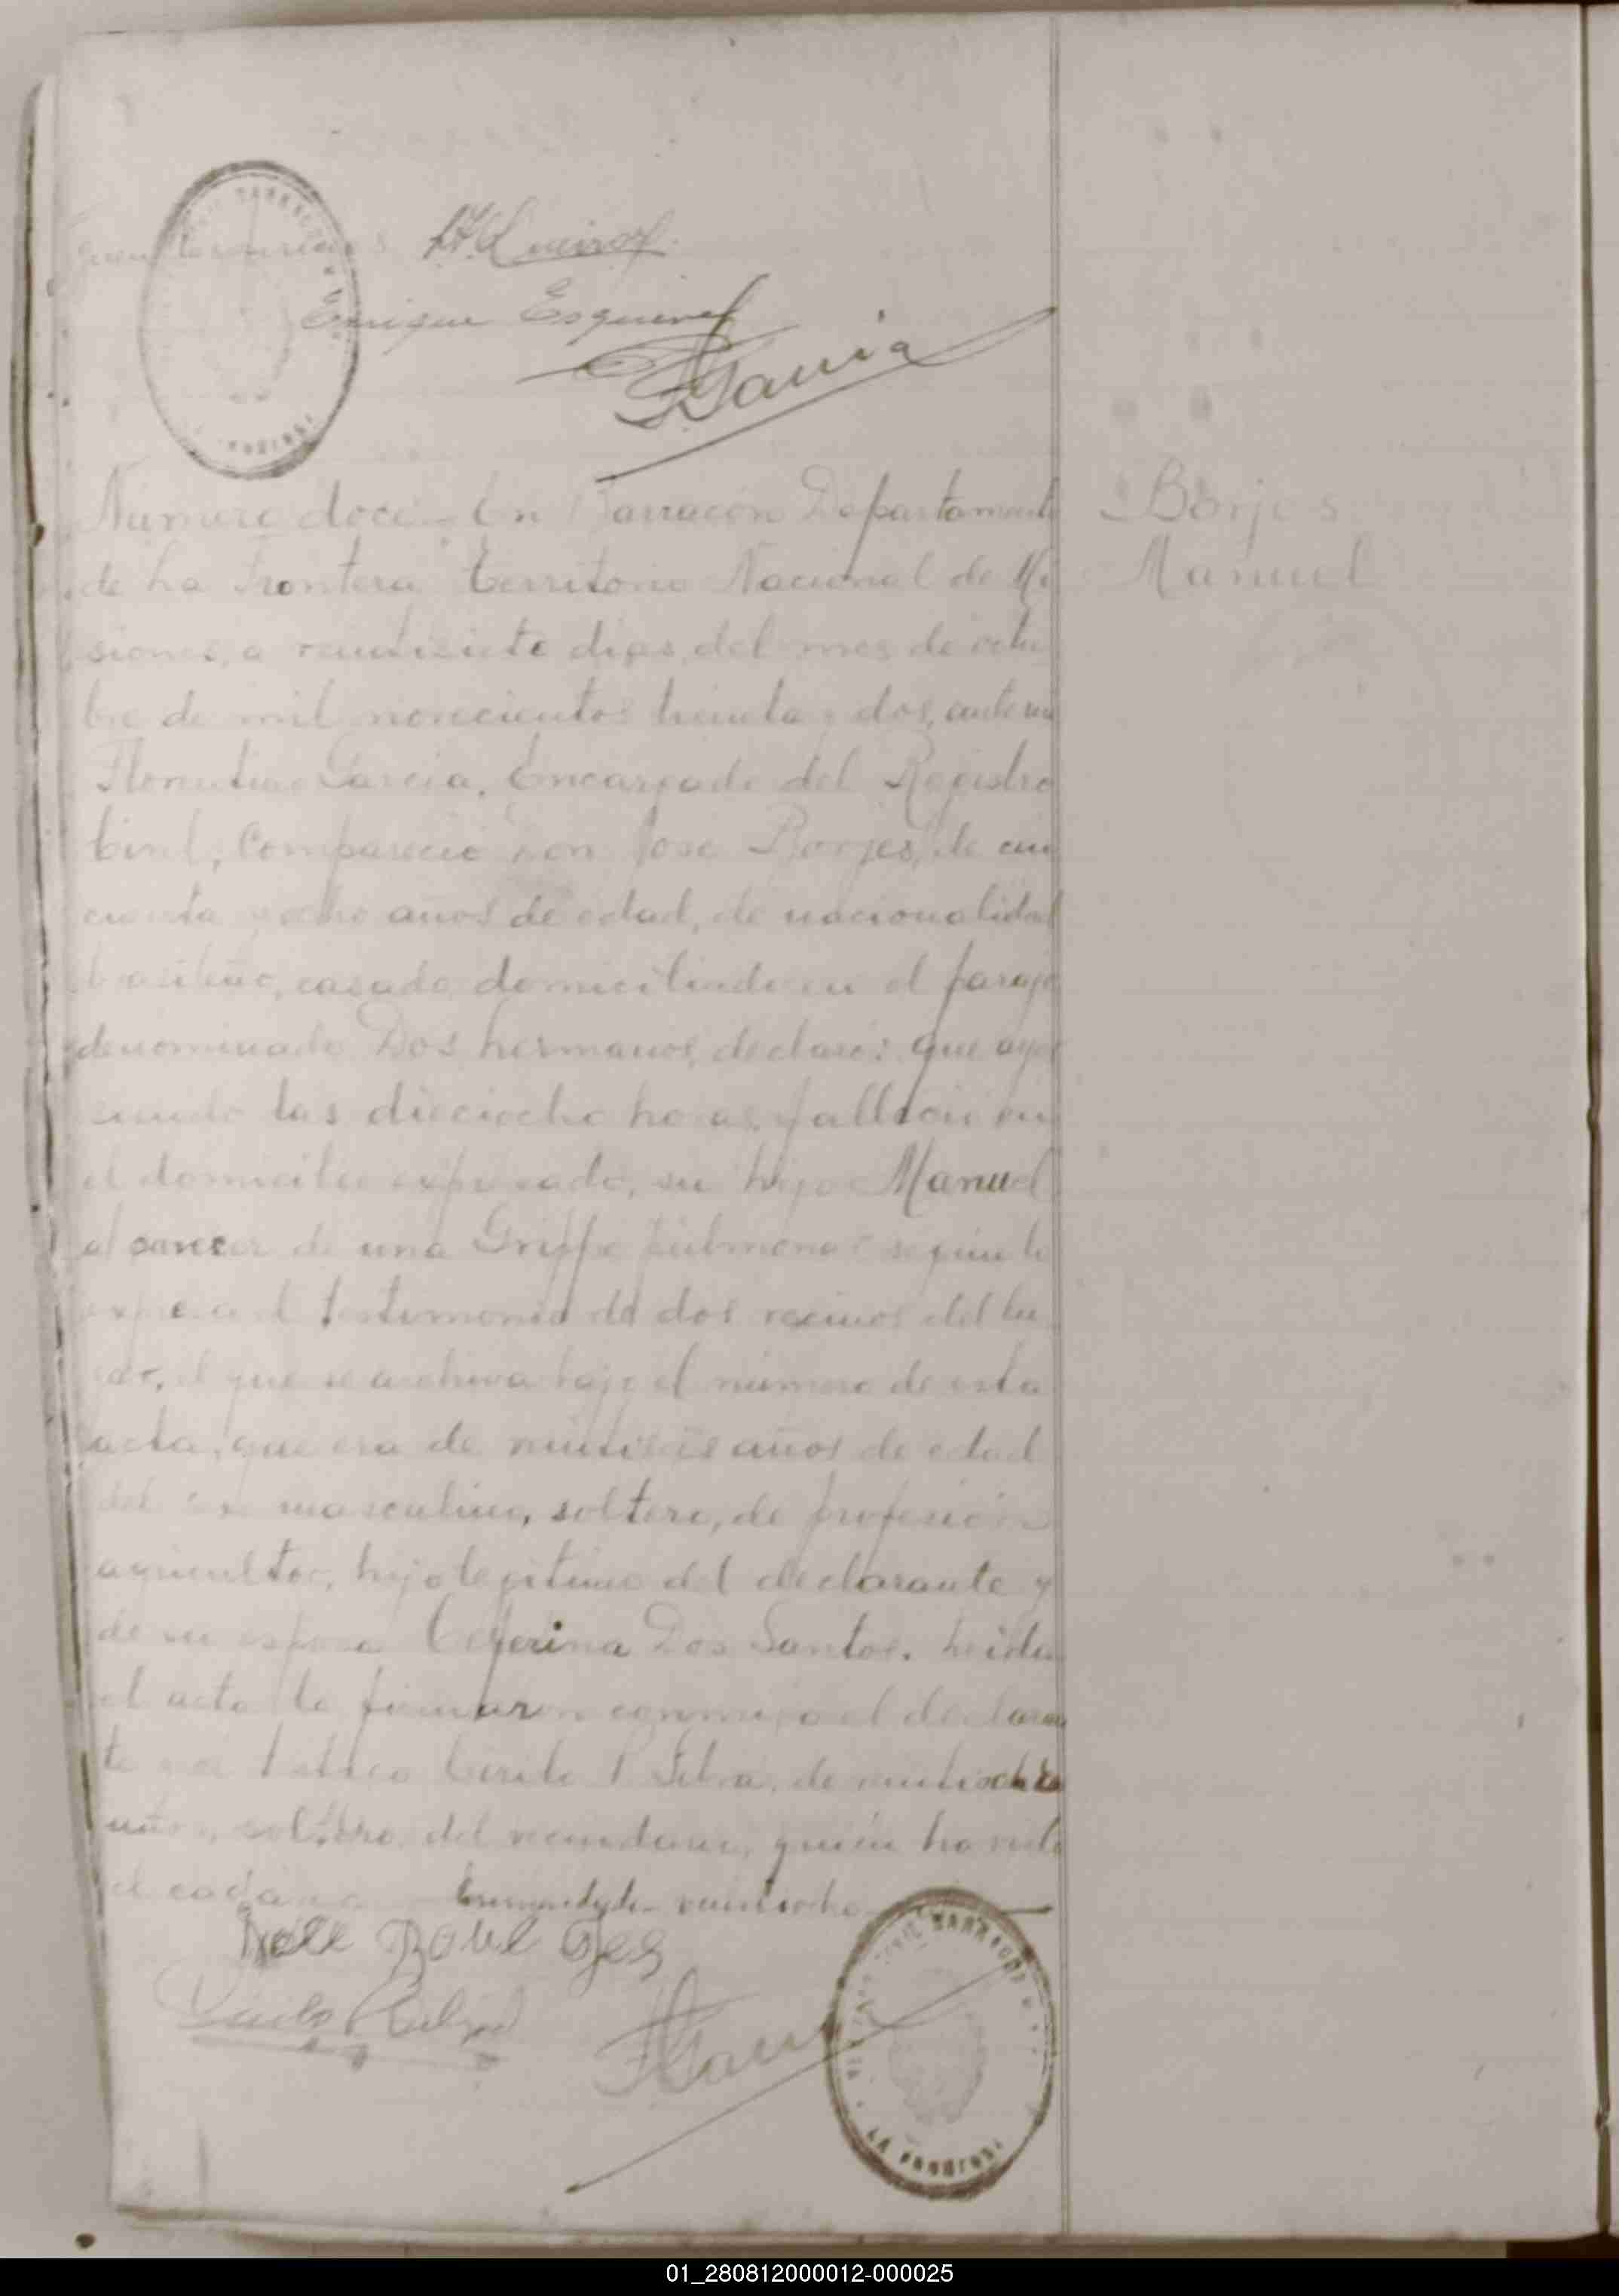 Enrique Esquivel
FGarcia
Borjes
Manuel
Numero doce. En Barracon Departamento
de La Frontera Territorio Nacional de Mi
siones, a veintisiete dias del mes de octu
bre de mil novecientos treinta y dos, ante mi
Florentino Garcia, Encargado del Registro
Civil, Comparecio don Jose Borjes, de cin
cuenta y ocho años de edad, de nacionalidad
brasileño, casado domiciliado en el paraje
denominado Dos hermanos, declaró: que ayer
siendo las dieciocho horas, falleció en
el domicilio expresado, su hijo Manuel
al parecer de una Grippe pulmonar según lo
expresa el testimonio de dos vecinos del lu
gar, el que se archiva bajo el número de esta
acta, que era de veintiseis años de edad
del sexo masculino, soltero, de profesión
agricultor, hijo legitimo del declarante y
de su esposa Ceferina Dos Santos. Leida
el acta la firmaron conmigo el declaran
te y el testigo Cirilo Silva, de veintiocho
años, soltero, del vecindario, quién ha visto
el cadaver. Enmendado veintiocho
FGarcia
LA FRONTERA
01_280812000012-000025